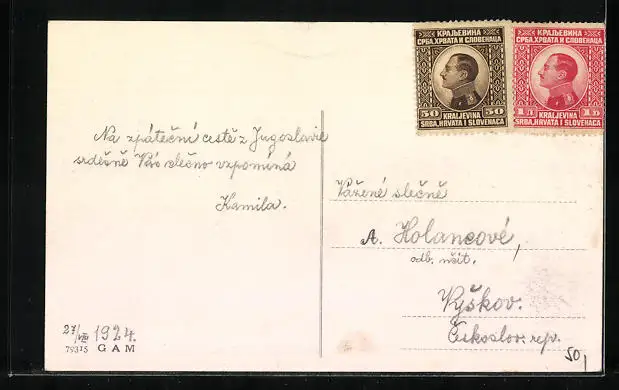 КРАЉЕВИНА
СРБА, ХРВАТА И СЛОВЕНАЦА
50 50
KRALJEVINA
SRBA, HRVATA I SLOVENACA
КРАЉЕВИНА
СРБА, ХРВАТА И СЛОВЕНАЦА
1Д 1D
KRALJEVINA
SRBA, HRVATA I SLOVENACA
Na zpáteční cestě z Jugoslavie
srdečně Vás slečno vzpomíná
Kamila.
Vážené slečně
A. Holancové,
odb. učit.
Vyškov.
Českoslov. rep.
27/VIII 1924.
79315 GAM
50,